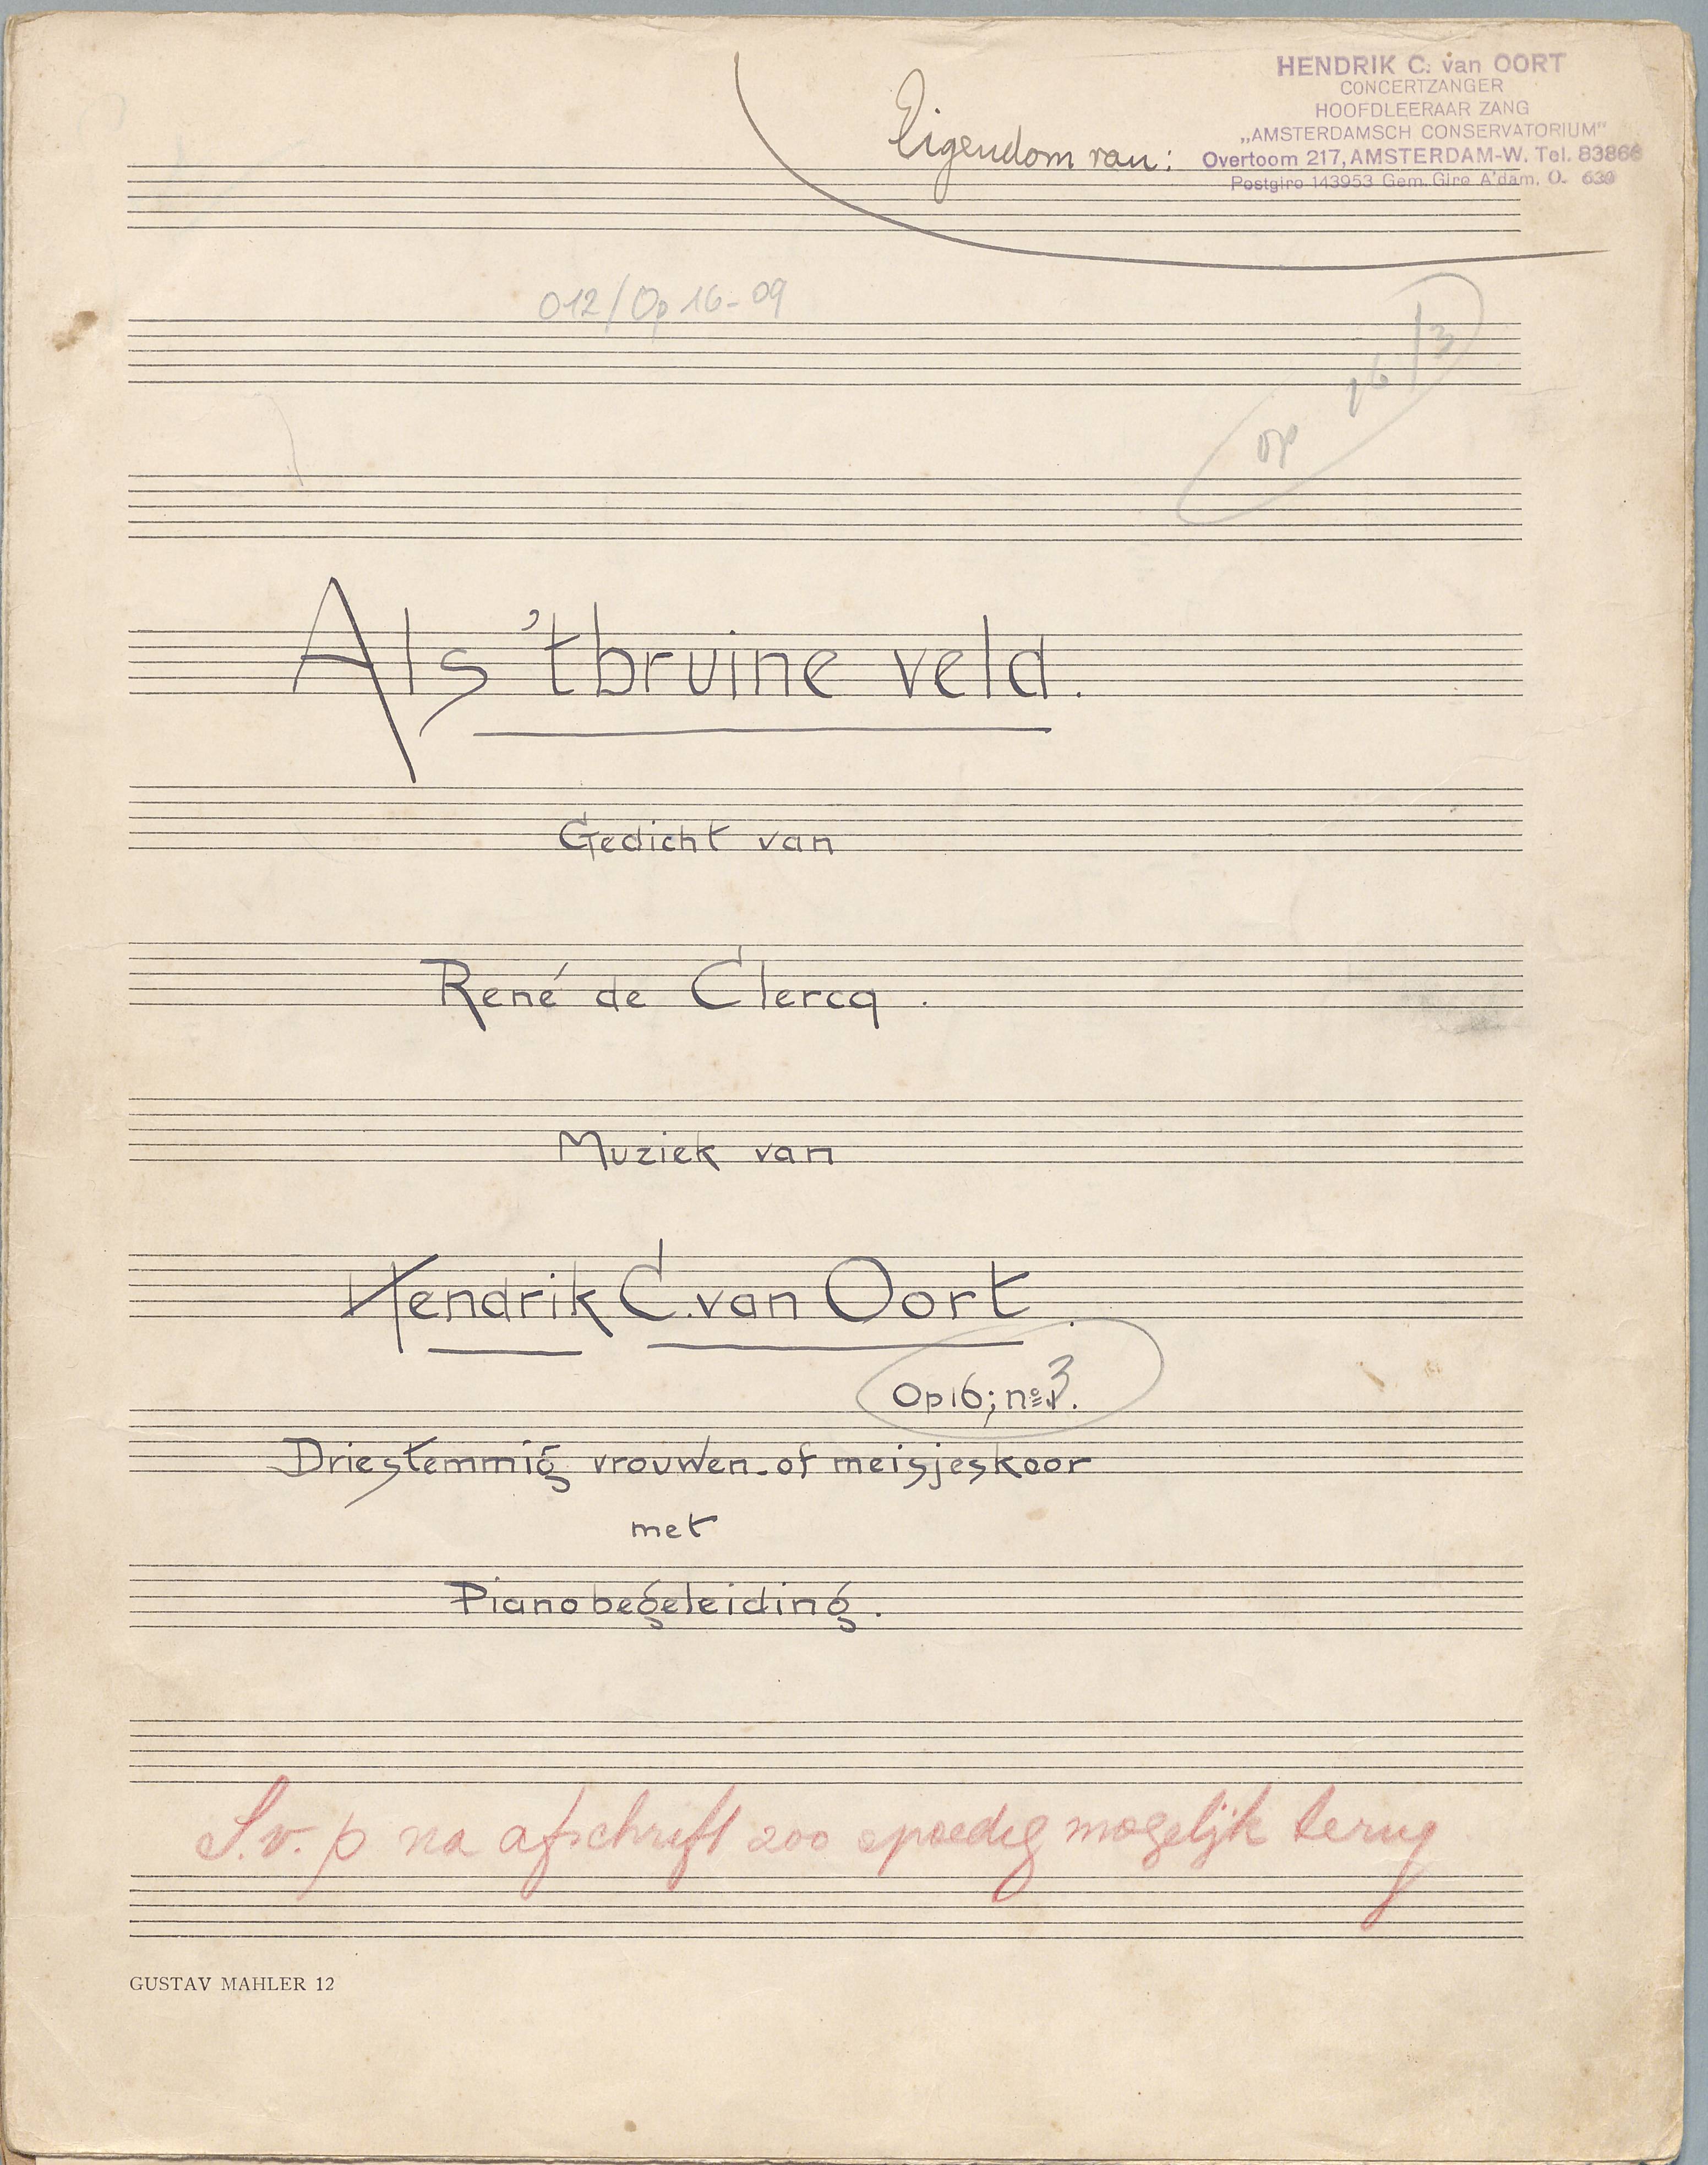 HENDRIK C. van OORT
CONCERTZANGER
HOOFDLEERAAR ZANG
„AMSTERDAMSCH CONSERVATORIUM"
Eigendom van: Overtoom 217, AMSTERDAM-W. Tel. 83866
Postgiro 143953 Gem. Giro A'dam, O. 630
012/Op 16-09
op 16/3
Als 't bruine veld.
Gedicht van
René de Clercq.
Muziek van
Hendrik C. van Oort.
Op 16; nº 3.
Driestemmig vrouwen- of meisjeskoor
met
Pianobegeleiding.
S.v.p na afschrift zoo spoedig mogelijk terug
GUSTAV MAHLER 12